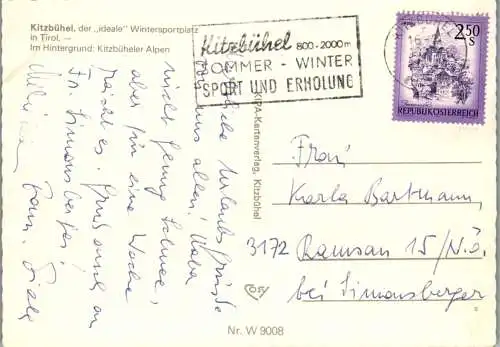 Kitzbühel, der „ideale" Wintersportplatz
in Tirol. —
Im Hintergrund: Kitzbüheler Alpen
Kitzbühel 800-2000m
SOMMER - WINTER
SPORT UND ERHOLUNG
2.50
S
REPUBLIK ÖSTERREICH
Herzliche Urlaubsgrüße
von uns allen! Haben
nicht genug Schnee,
aber für eine Woche
reicht es. Gruß auch an
Fr. Simonsberger!
Franz
KIRA-Kartenverlag, Kitzbühel
Frau
Karla Bartmann
3172 Ramsau 15/N.Ö.
bei Simonsberger
Nr. W 9008